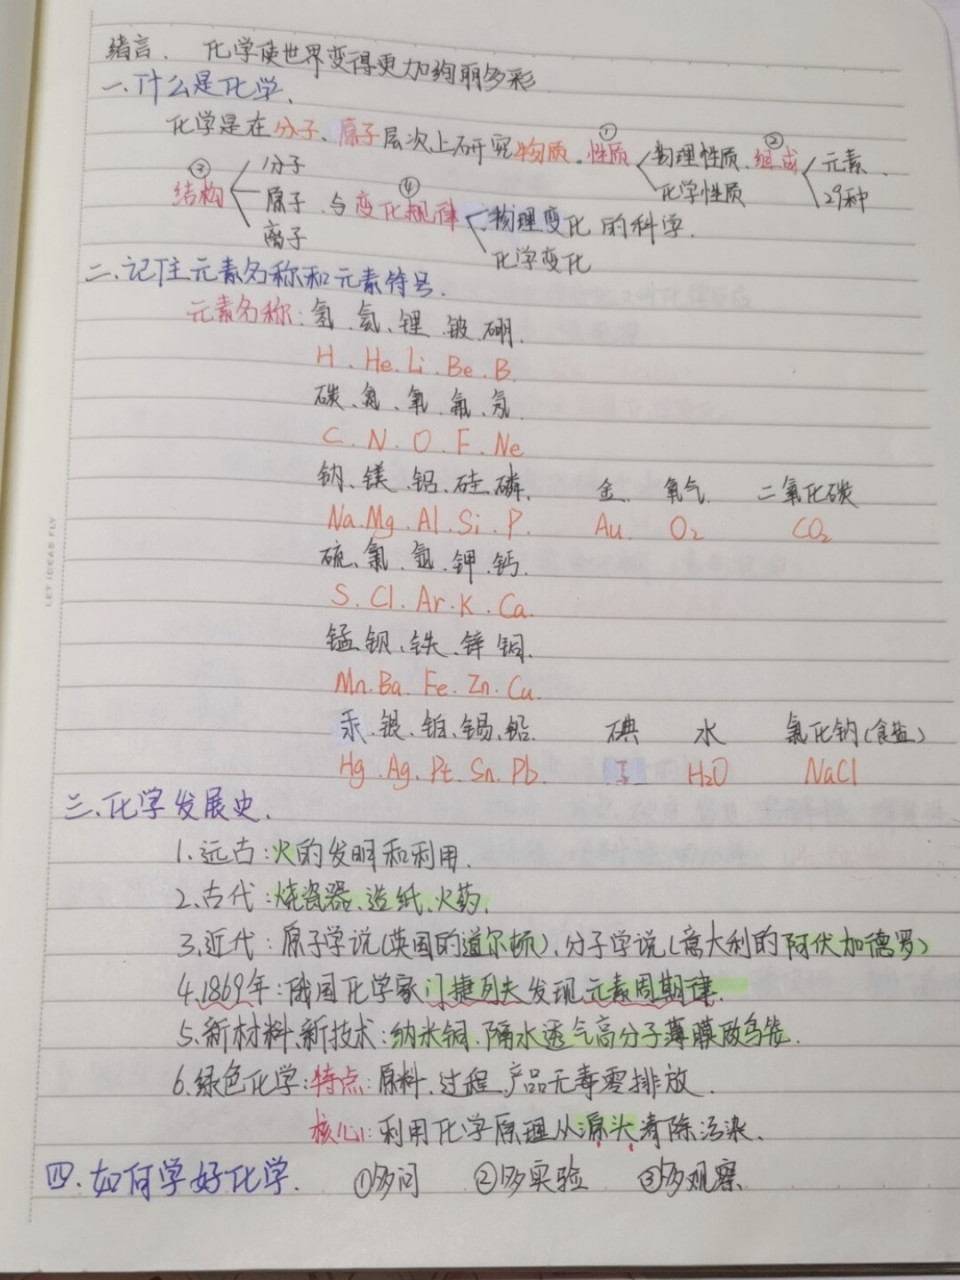 绪言. 化学使世界变得更加绚丽多彩
一.什么是化学.
化学是在分子、原子层次上研究物质.①性质 物理性质.②组成 元素.
化学性质 29种
③结构 分子
原子 与④变化规律 物理变化 的科学.
离子
化学变化
二.记住元素名称和元素符号.
元素名称:氢.氦、锂.铍.硼.
H.He.Li.Be.B.
碳、氮、氧、氟、氖.
C.N.O.F.Ne
钠、镁.铝.硅.磷. 金. 氧气. 二氧化碳
Na.Mg.Al.Si.P. Au. O₂ CO₂
硫、氯、氩、钾、钙.
S.Cl.Ar.K.Ca.
锰.钡、铁、锌 铜.
Mn.Ba.Fe.Zn.Cu.
汞、银、铂、锡、铅. 碘 水 氯化钠(食盐)
Hg.Ag.Pt.Sn.Pb. I H₂O NaCl
三.化学发展史.
1.远古:火的发明和利用.
2.古代:烧瓷器、造纸、火药.
3.近代:原子学说(英国的道尔顿).分子学说(意大利的阿伏加德罗)
4.1869年:俄国化学家门捷列夫发现元素周期律.
5.新材料、新技术:纳米铜.隔水透气高分子薄膜做鸟笼.
6.绿色化学:特点:原料.过程.产品无毒零排放.
核心:利用化学原理从源头清除污染.
四.如何学好化学. ①多问 ②多实验 ③多观察
LET IDEAS FLY